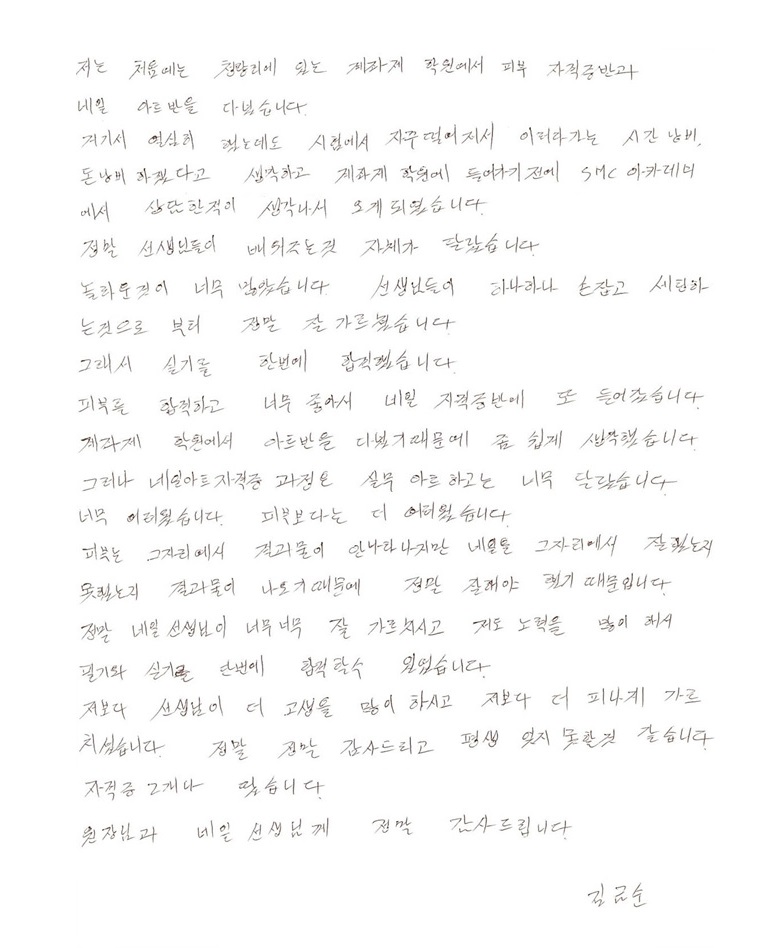 저는 처음에는 청량리에 있는 제과제 학원에서 피부 자격증반과
네일 아트반을 다녔습니다.
거기서 열심히 했는데도 시험에서 자꾸 떨어져서 이러다가는 시간 낭비,
돈낭비 하겠다고 생각하고 제과제 학원에 들어가기 전에 SMC 아카데미
에서 상담한적이 생각나서 오게 되었습니다.
정말 선생님들이 배워주는것 자체가 달랐습니다.
놀라운것이 너무 많았습니다. 선생님들이 하나하나 손잡고 세팅하
는것으로 부터 정말 잘 가르쳤습니다.
그래서 실기를 한번에 합격했습니다.
피부를 합격하고 너무 좋아서 네일 자격증반에 또 들어갔습니다.
제과제 학원에서 아트반을 다녔기때문에 좀 쉽게 생각했습니다.
그러나 네일아트자격증 과정은 실무 아트하고는 너무 달랐습니다.
너무 어려웠습니다. 피부보다는 더 어려웠습니다.
피부는 그자리에서 결과물이 안나타나지만 네일은 그자리에서 잘했는지
못했는지 결과물이 나오기때문에 정말 잘해야 했기 때문입니다.
정말 네일 선생님이 너무너무 잘 가르치시고 저도 노력을 많이 해서
필기와 실기를 단번에 합격할수 있었습니다.
저보다 선생님이 더 고생을 많이 하시고 저보다 더 피나게 가르
치셨습니다. 정말 정말 감사드리고 평생 잊지 못할것 같습니다.
자격증 2개나 땄습니다.
원장님과 네일 선생님께 정말 감사드립니다.
김금순